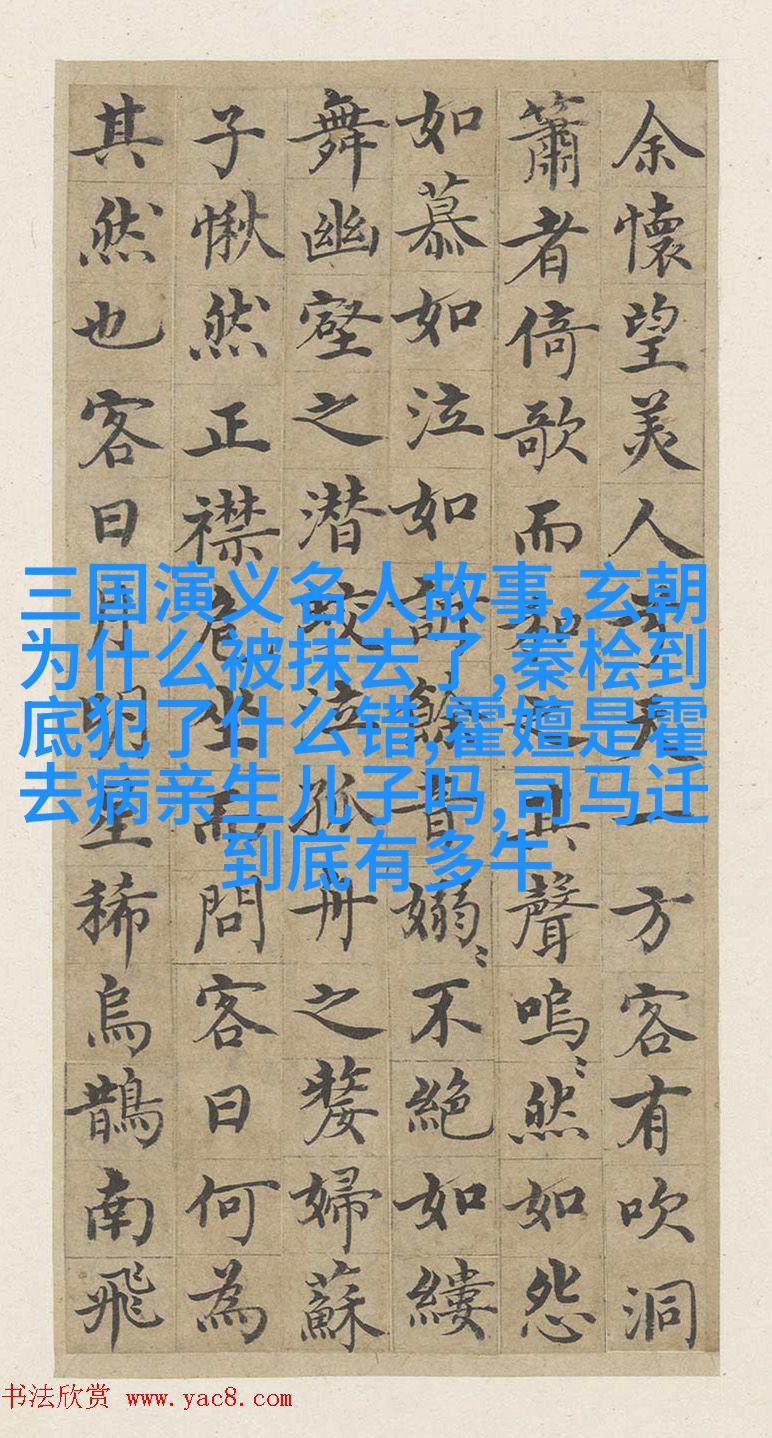 余懷望美人兮天一方客有吹洞
簫者倚歌而和之其聲嗚〻然如怨
如慕如泣如訴餘音嫋〻不絶如縷
舞幽壑之潜蛟泣孤舟之嫠婦蘇
子愀然正襟危坐而問客曰何為
其然也客曰月明星稀烏鵲南飛
三国演义名人故事,玄朝
为什么被抹去了,秦桧到
底犯了什么错,霍嬗是霍
去病亲生儿子吗,司马迁
到底有多牛
书法欣赏 www.yac8.com